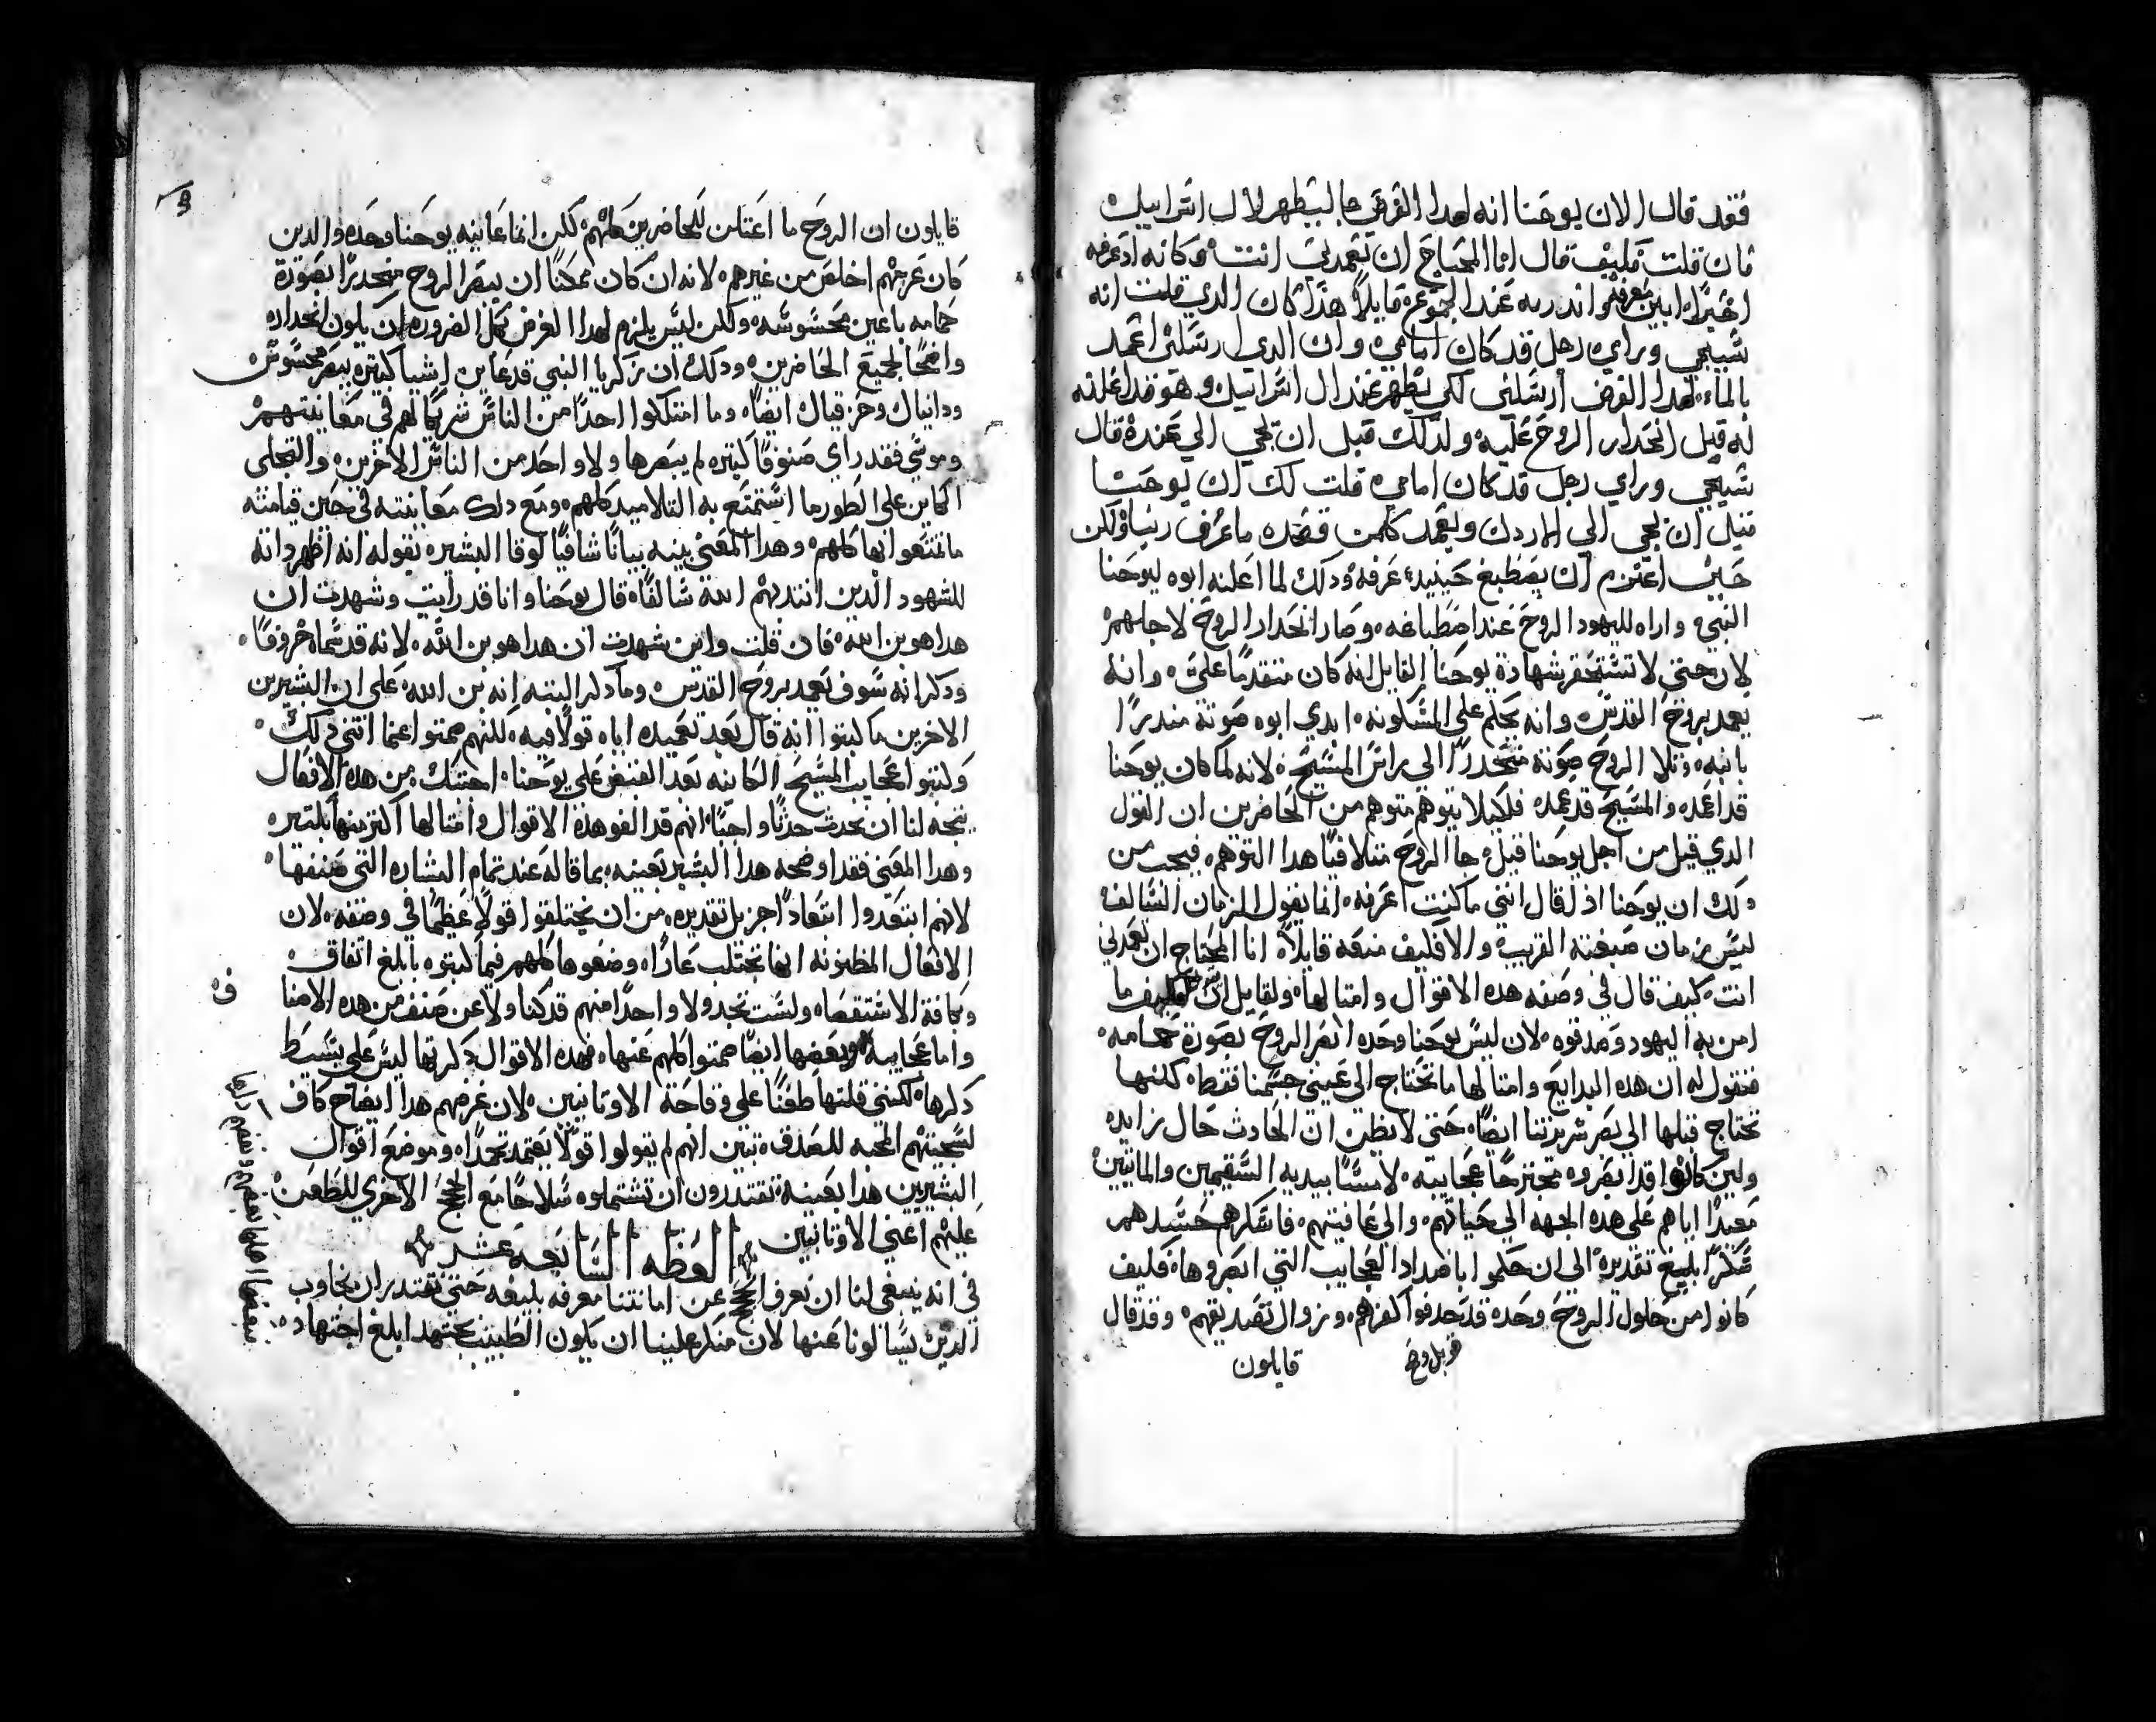 فقد قال الان يوحنا انه لهدا الغرض جا ليظهر لال اسراييل
فان قلت فكيف قال انا المحتاج ان تعمدني انت وكانه اد عرفه
اخيرًا ابين معرفته واندر به عند الجموع قايلاً هذا كان الدي قلت انه
سيجي وراي رجل قد كان امامي وان الدي ارسلني اعمد
بالماء لهدا الغرض ارسلني لكي يظهر عند ال اسراييل وهو فداعلنه
له قبل انحدار الروح عليه ولدلك قبل ان يجي الي عنده قال
سيجي وراي رجل قد كان امامي قلت لك ان يوحنا
قبل ان يجي الي الاردن ويعمد كلمن قصده ما عرف ربنا ولكن
حين اعتزم ان يصطبغ حينيد عرفه ودلك لما اعلنه ابوه ليوحنا
النبي واراه لليهود الروح عند اصطباغه وصار انحدار الروح لاجلهم
لان حتي لا تستحقر شهادة يوحنا القايل انه كان متقدمًا علي وانه
يعمد بروح القدس وانه يحكم علي المسكونه ابدي ابوه صوته مندرًا
بابنه وتلا الروح صوته منحدرًا الي راس المسيح لانه لما كان يوحنا
قد اعمده والمسيح قد عمده فلكيلا يتوهم متوهم من الحاضرين ان القول
الدي قيل من اجل يوحنا قيل جا الروح متلافيًا هدا التوهم فيجب من
دلك ان يوحنا اذ قال انني ما كنت اعرفه انما يقول الزمان السالف
ليس زمان صبغته القريب والا فكيف منعه قايلاً انا المحتاج ان تعمدني
انت كيف قال في وصفه هده الاقوال وامتالها ولقايل ان فكيف ما
امن به اليهود وصدقوه لان ليس يوحنا وحده ابصر الروح بصورة حمامه
فنقول له ان هده البدايع وامتالها ما تحتاج الي عيني جسمنا فقط لكنها
تحتاج قبلها الي بصر سريرتنا ايضًا حتي لا يظن ان الحادث حال زايده
ولين كانوا قد ابصروه مجترحًا عجايبه لامسًا بيديه السقيمين والمايتين
معيدًا اياهم علي هده الجهه الي حياتهم والي عافيتهم فاسكرهم حسدهم
سكرًا بليغ تقديره الي ان حكموا باضداد العجايب التي ابصروها فكيف
كانوا من حلول الروح وحده قد حدفوا كفرهم وزوال تصديقهم وقد قال
قوبل وصح
قايلون
قايلون ان الروح ما اعتلن للحاضرين كلهم لكن انما عاينه يوحنا وحده والدين
كان عزمهم اخلص من غيرهم لانه ان كان ممكنًا ان يبصر الروح منحدرًا بصورة
حمامه باعين محسوسه ولكن ليس يلزم لهدا الغرض كل الضروره ان يكون انحداره
واضحًا لجميع الحاضرين ودلك ان زكريا النبي قد عاين اشيا كتيره ببصر محسوس
ودانيال وحزقيال ايضًا وما امتلكوا احدًا من الناس شريكًا لهم في معاينتهم
وموسي فقد راي صنوفًا كتيره لم يبصرها ولا واحد من الناس الاخرين والتجلي
الكاين علي الطور ما استمتع به التلاميد كلهم ومع دلك معاينته في حين قيامته
ما تمتعوا بها كلهم وهدا المعني يبينه بيانًا شافيًا لوقا البشير بقوله انه اظهر دانه
للشهود الدين انتدبهم الله سالفًا قال يوحنا وانا قد رايت وشهدت ان
هدا هو بن الله فان قلت واين شهدت ان هدا هو بن الله لانه قد سماه خروفًا
ودكر انه سوف يعمد بروح القدس وما دكر البته انه بن الله علي ان البشيرين
الاخرين ما كتبوا انه قال بعد تعميده اياه قولاً فيه لكنهم صمتوا عما انتني دلك
وكتبوا عجايب المسيح الكاينه بعد القبض علي يوحنا احتتك من هده الافعال
يتجه لنا ان نحدث حدثًا واجبًا انهم قد الفو هذه الاقوال وامتالها اكتر منها بكتير
وهدا المعني فقد اوضحه هدا البشير بعينه بما قاله عند تمام البشاره التي صنفها
لانهم ابتعدوا ابتعادًا جزيل تقديره من ان يختلقوا قولاً عظيمًا في وصفه لان
الافعال المظنونه انها تجتلب عارًا وضعوها كلهم فيما كتبوه بابلغ اتفاق
وكافة الاستقصا ولست تجد ولا واحدًا منهم قد كنا ولا عن صنف من هده الاصنا
واما عجايبه وبعضها ايضًا صمتوا كلهم عنها فهده الاقوال دكرتها ليس علي بسيط
دكرها لكنني قلتها طعنًا علي وقاحة الاوتانيين لان غرضهم هدا ايضاح كاف
لسجيتهم المحبه للصدق تبين انهم لم يقولوا قولاً يعتمد تحمدًا وموضع اقوال
البشيريين هدا بعينه تقتدرون ان تستملوه سلاحًا مع الحجج الاخري للطعن
عليهم اعني الاوتانيين
العظه السابعه عشر
في انه ينبغي لنا ان نعرف الحجج عن امانتنا معرفه بليغه حتي نقتدر ان نجاوب
الدين يسالونا عنها لان منكر علينا ان يكون الطبيب يجتهد ابلغ اجتهاده
ف